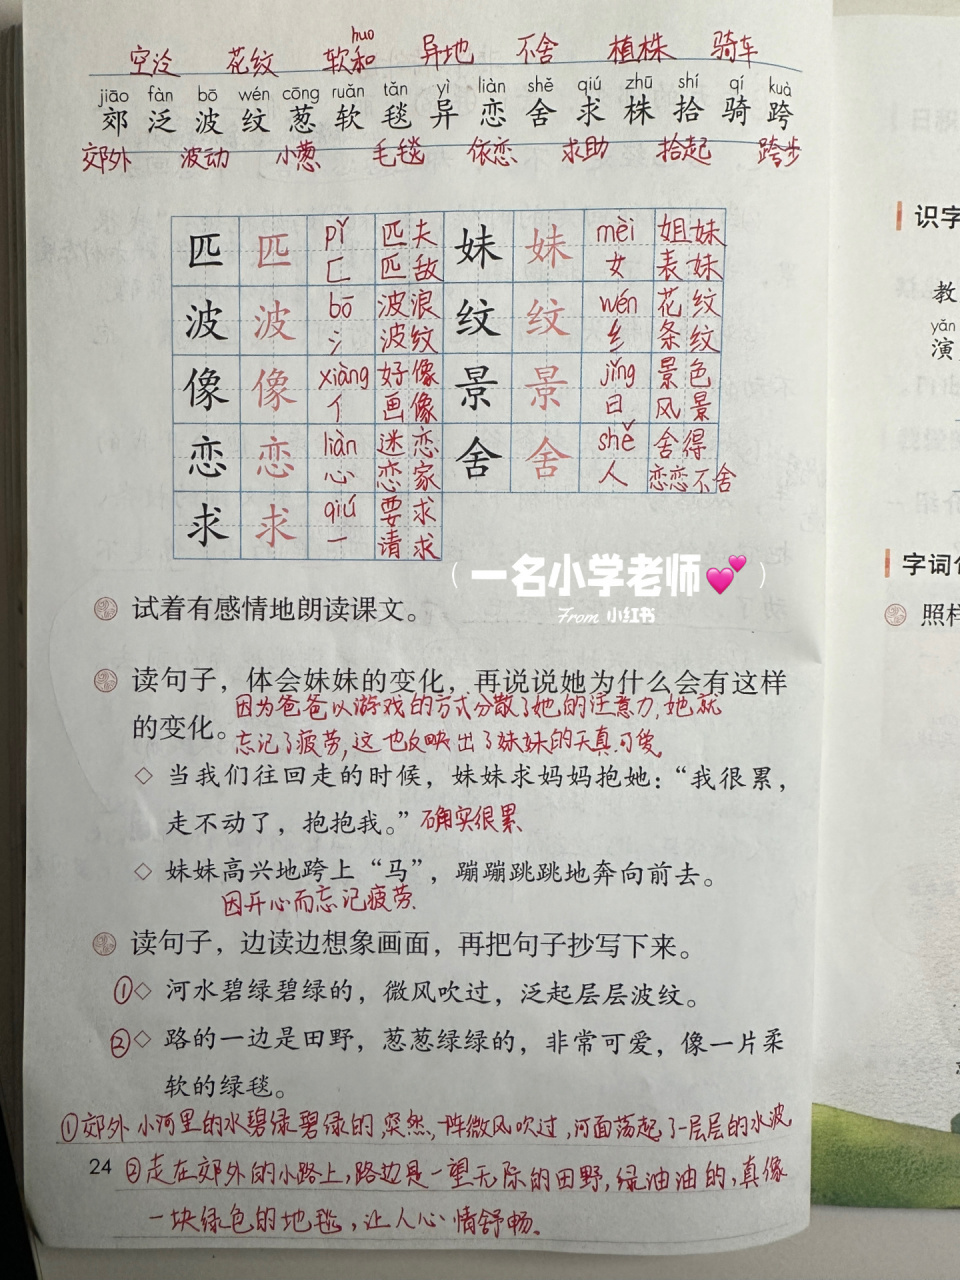 空泛 花纹 软和 huo 异地 不舍 植株 骑车
jiāo fàn bō wén cōng ruǎn tǎn yì liàn shě qiú zhū shí qí kuà
郊 泛 波 纹 葱 软 毯 异 恋 舍 求 株 拾 骑 跨
郊外 波动 小葱 毛毯 依恋 求助 拾起 跨步
匹 匹 pǐ 匹夫 妹 妹 mèi 姐妹
匚 匹敌 女 表妹
波 波 bō 波浪 纹 纹 wén 花纹
氵 波纹 纟 条纹
像 像 xiàng 好像 景 景 jǐng 景色
亻 画像 日 风景
恋 恋 liàn 迷恋 舍 舍 shě 舍得
心 恋家 人 恋恋不舍
求 求 qiú 要求
一 请求
(一名小学老师💕)
From 小红书
试着有感情地朗读课文。
读句子，体会妹妹的变化，再说说她为什么会有这样
因为爸爸以游戏的方式分散了她的注意力,她就
的变化。
忘记了疲劳,这也反映出了妹妹的天真可爱
◇ 当我们往回走的时候，妹妹求妈妈抱她：“我很累，
走不动了，抱抱我。” 确实很累
◇ 妹妹高兴地跨上“马”，蹦蹦跳跳地奔向前去。
因开心而忘记疲劳
读句子，边读边想象画面，再把句子抄写下来。
①◇ 河水碧绿碧绿的，微风吹过，泛起层层波纹。
②◇ 路的一边是田野，葱葱绿绿的，非常可爱，像一片柔
软的绿毯。
①郊外小河里的水碧绿碧绿的,突然,一阵微风吹过,河面荡起了一层层的水波
24 ②走在郊外的小路上,路边是一望无际的田野,绿油油的,真像
一块绿色的地毯,让人心情舒畅。
识字
教
yǎn
演
介绍
字词
照样